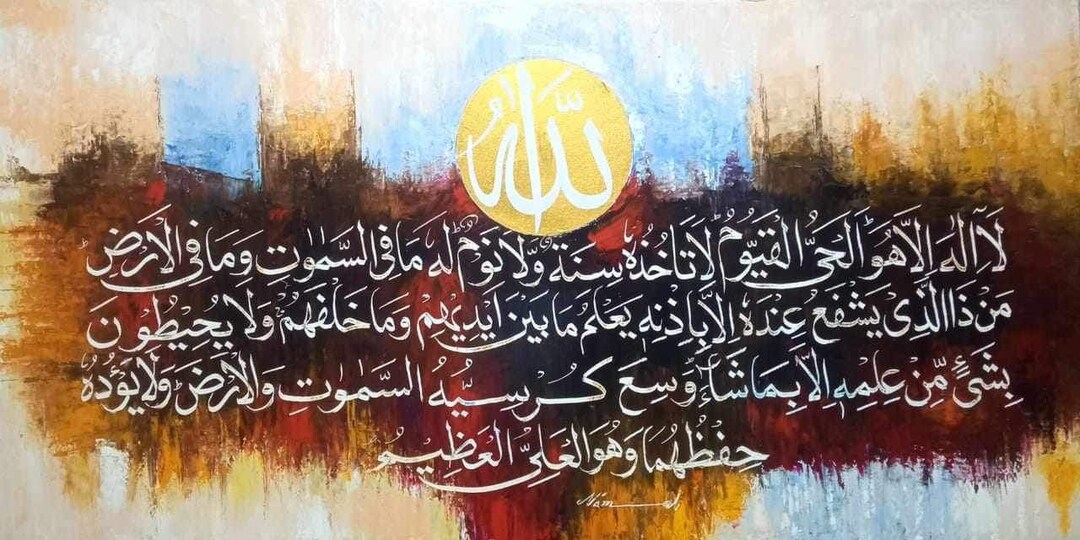 الله
لَآ اِلٰهَ اِلَّا هُوَ الْحَیُّ الْقَیُّوْمُ لَا تَاْخُذُهٗ سِنَةٌ وَّلَا نَوْمٌ لَهٗ مَا فِی السَّمٰوٰتِ وَمَا فِی الْاَرْضِ
مَنْ ذَا الَّذِیْ یَشْفَعُ عِنْدَهٗ اِلَّا بِاِذْنِهٖ یَعْلَمُ مَا بَیْنَ اَیْدِیْهِمْ وَمَا خَلْفَهُمْ وَلَا یُحِیْطُوْنَ
بِشَیْءٍ مِّنْ عِلْمِهٖٓ اِلَّا بِمَا شَآءَ وَسِعَ كُرْسِیُّهُ السَّمٰوٰتِ وَالْاَرْضَ وَلَا یَـُٔوْدُهٗ
حِفْظُهُمَا وَهُوَ الْعَلِیُّ الْعَظِیْمُ